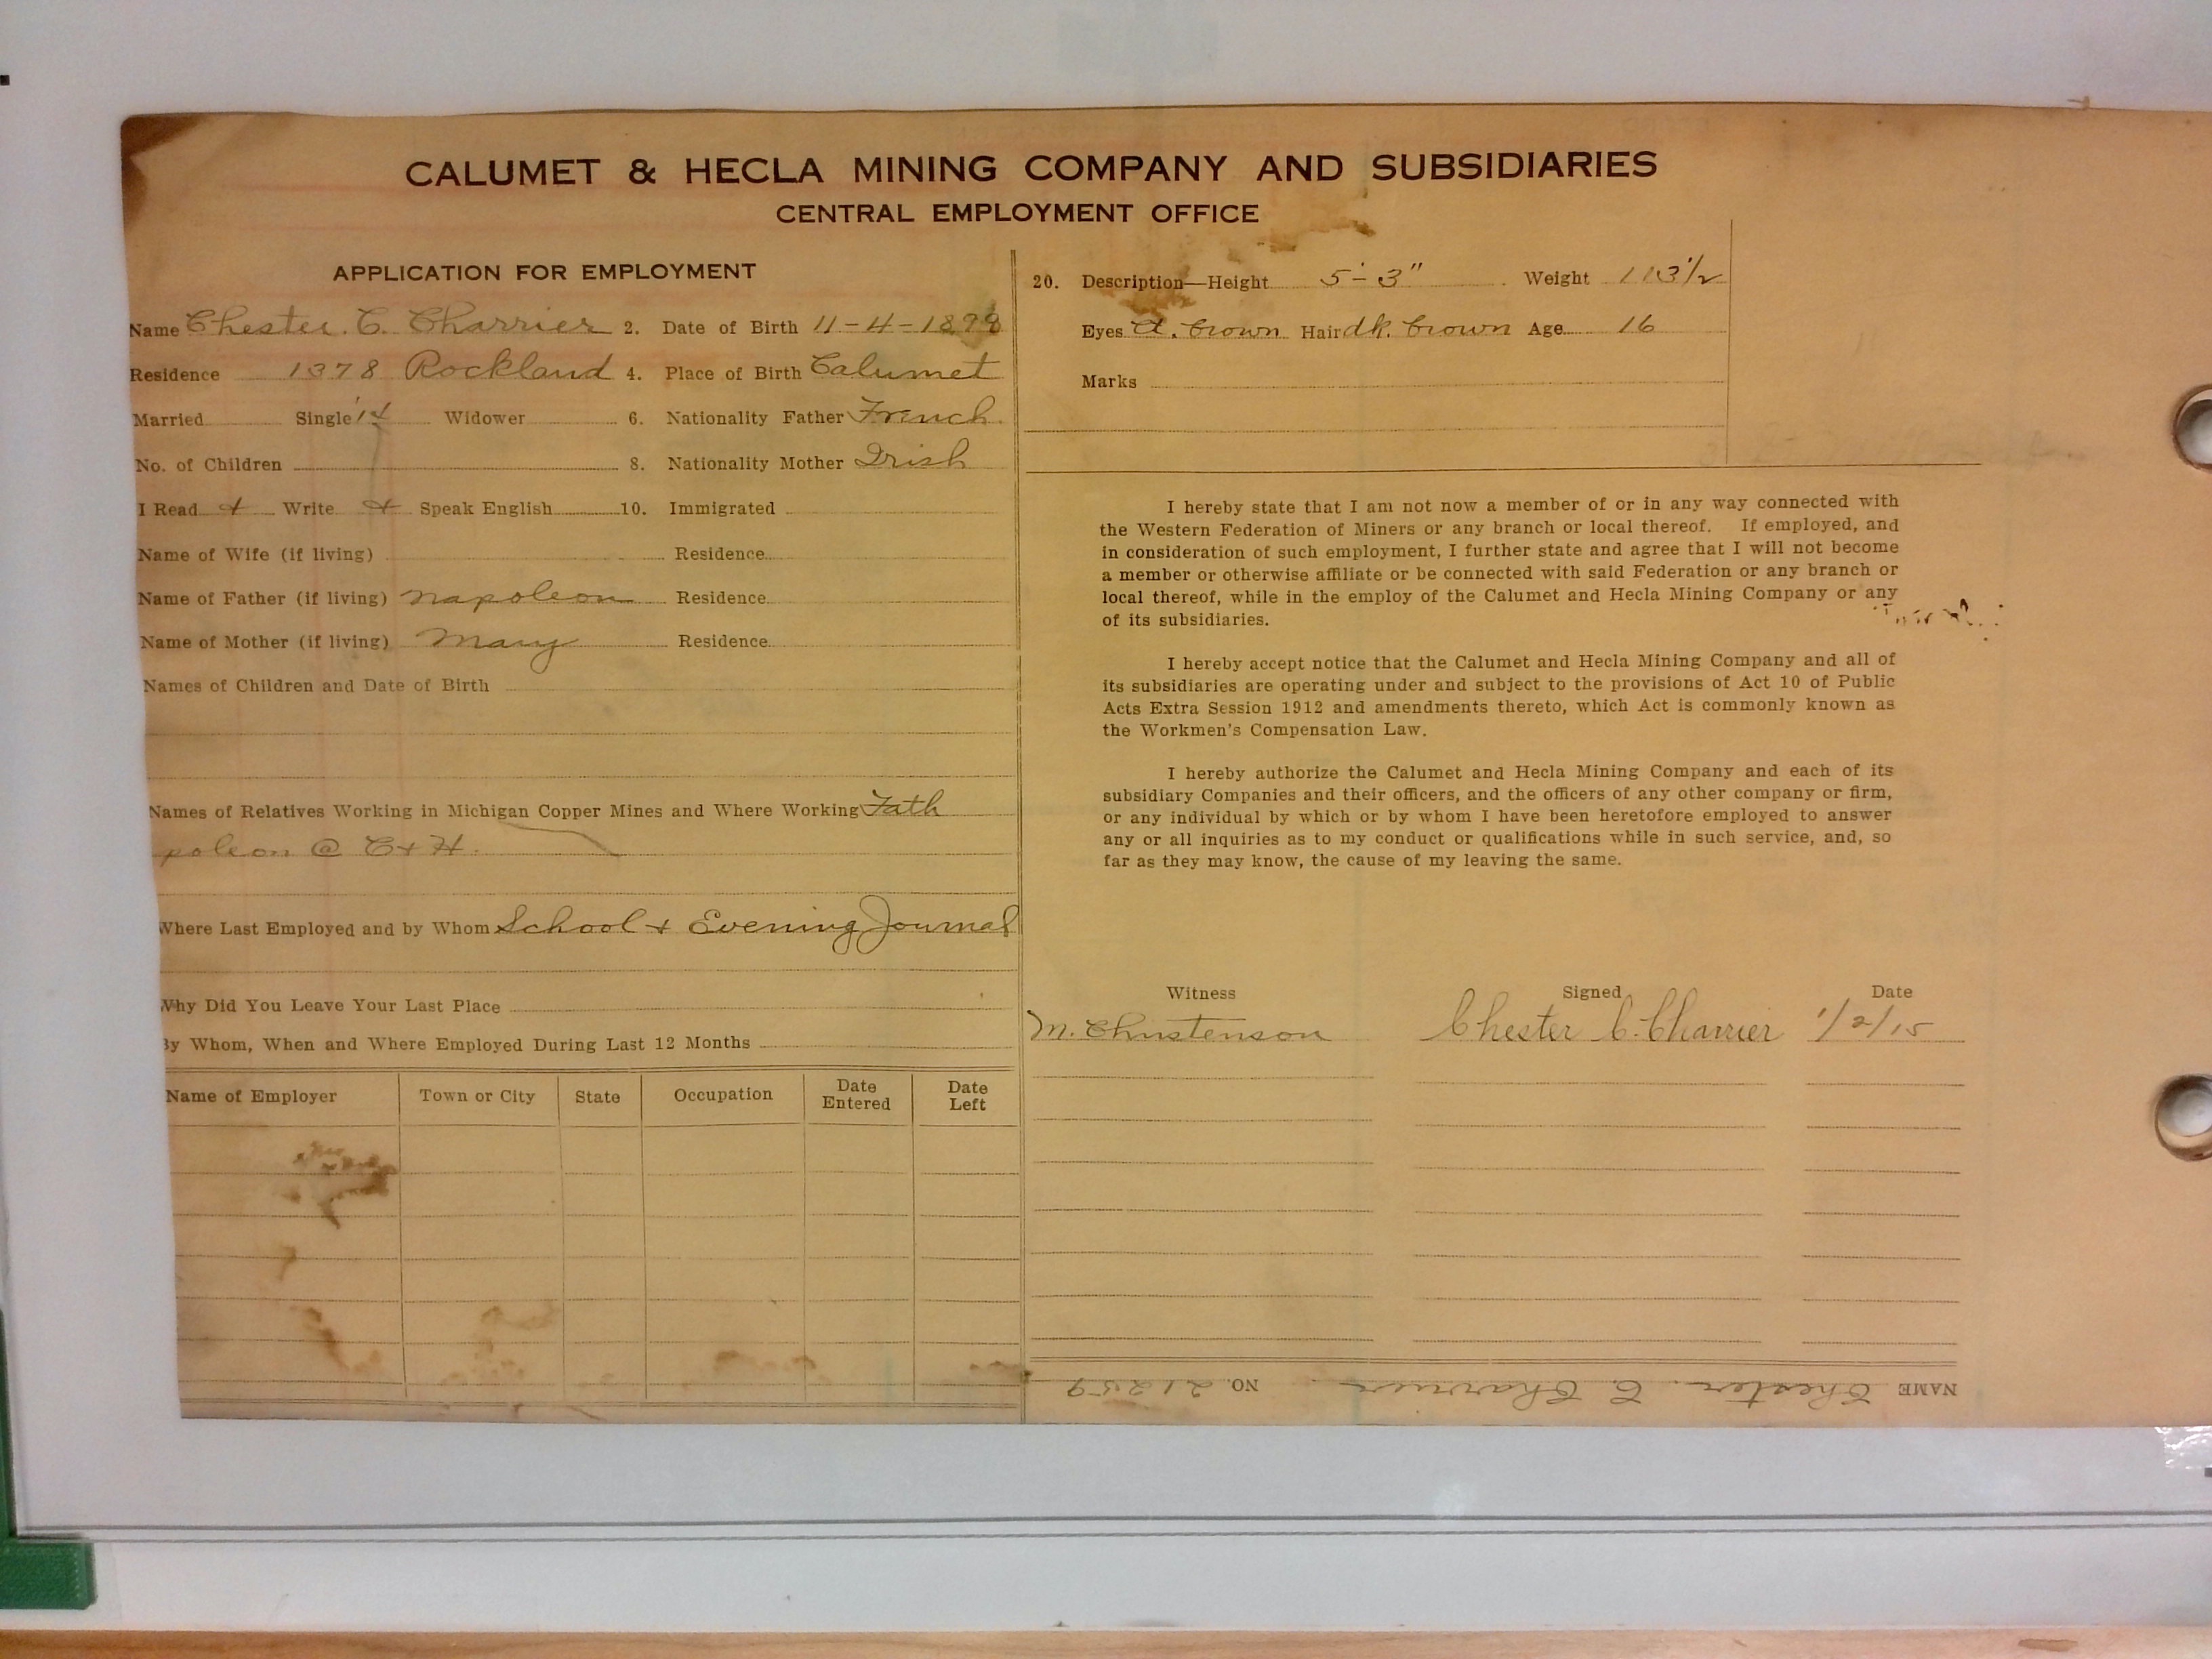 CALUMET & HECLA MINING COMPANY AND SUBSIDIARIES
CENTRAL EMPLOYMENT OFFICE
APPLICATION FOR EMPLOYMENT
Name Chester. C. Charrier 2. Date of Birth 11-4-1898
Residence 1378 Rockland 4. Place of Birth Calumet
Married Single Widower 6. Nationality Father French
No. of Children 8. Nationality Mother Irish
I Read + Write + Speak English 10. Immigrated
Name of Wife (if living) Residence
Name of Father (if living) Napoleon Residence
Name of Mother (if living) Mary Residence
Names of Children and Date of Birth
Names of Relatives Working in Michigan Copper Mines and Where Working Fath
poleon @ C + H.
Where Last Employed and by Whom School + Evening Journal
Why Did You Leave Your Last Place
By Whom, When and Where Employed During Last 12 Months
Name of Employer Town or City State Occupation Date Entered Date Left
20. Description—Height 5'-3" Weight 113 1/2
Eyes brown Hair dk. brown Age 16
Marks
I hereby state that I am not now a member of or in any way connected with
the Western Federation of Miners or any branch or local thereof. If employed, and
in consideration of such employment, I further state and agree that I will not become
a member or otherwise affiliate or be connected with said Federation or any branch or
local thereof, while in the employ of the Calumet and Hecla Mining Company or any
of its subsidiaries.
I hereby accept notice that the Calumet and Hecla Mining Company and all of
its subsidiaries are operating under and subject to the provisions of Act 10 of Public
Acts Extra Session 1912 and amendments thereto, which Act is commonly known as
the Workmen's Compensation Law.
I hereby authorize the Calumet and Hecla Mining Company and each of its
subsidiary Companies and their officers, and the officers of any other company or firm,
or any individual by which or by whom I have been heretofore employed to answer
any or all inquiries as to my conduct or qualifications while in such service, and, so
far as they may know, the cause of my leaving the same.
Witness Signed Date
M. Christenson Chester C. Charrier 1/2/15
NAME Chester. C. Charrier. NO. 21259